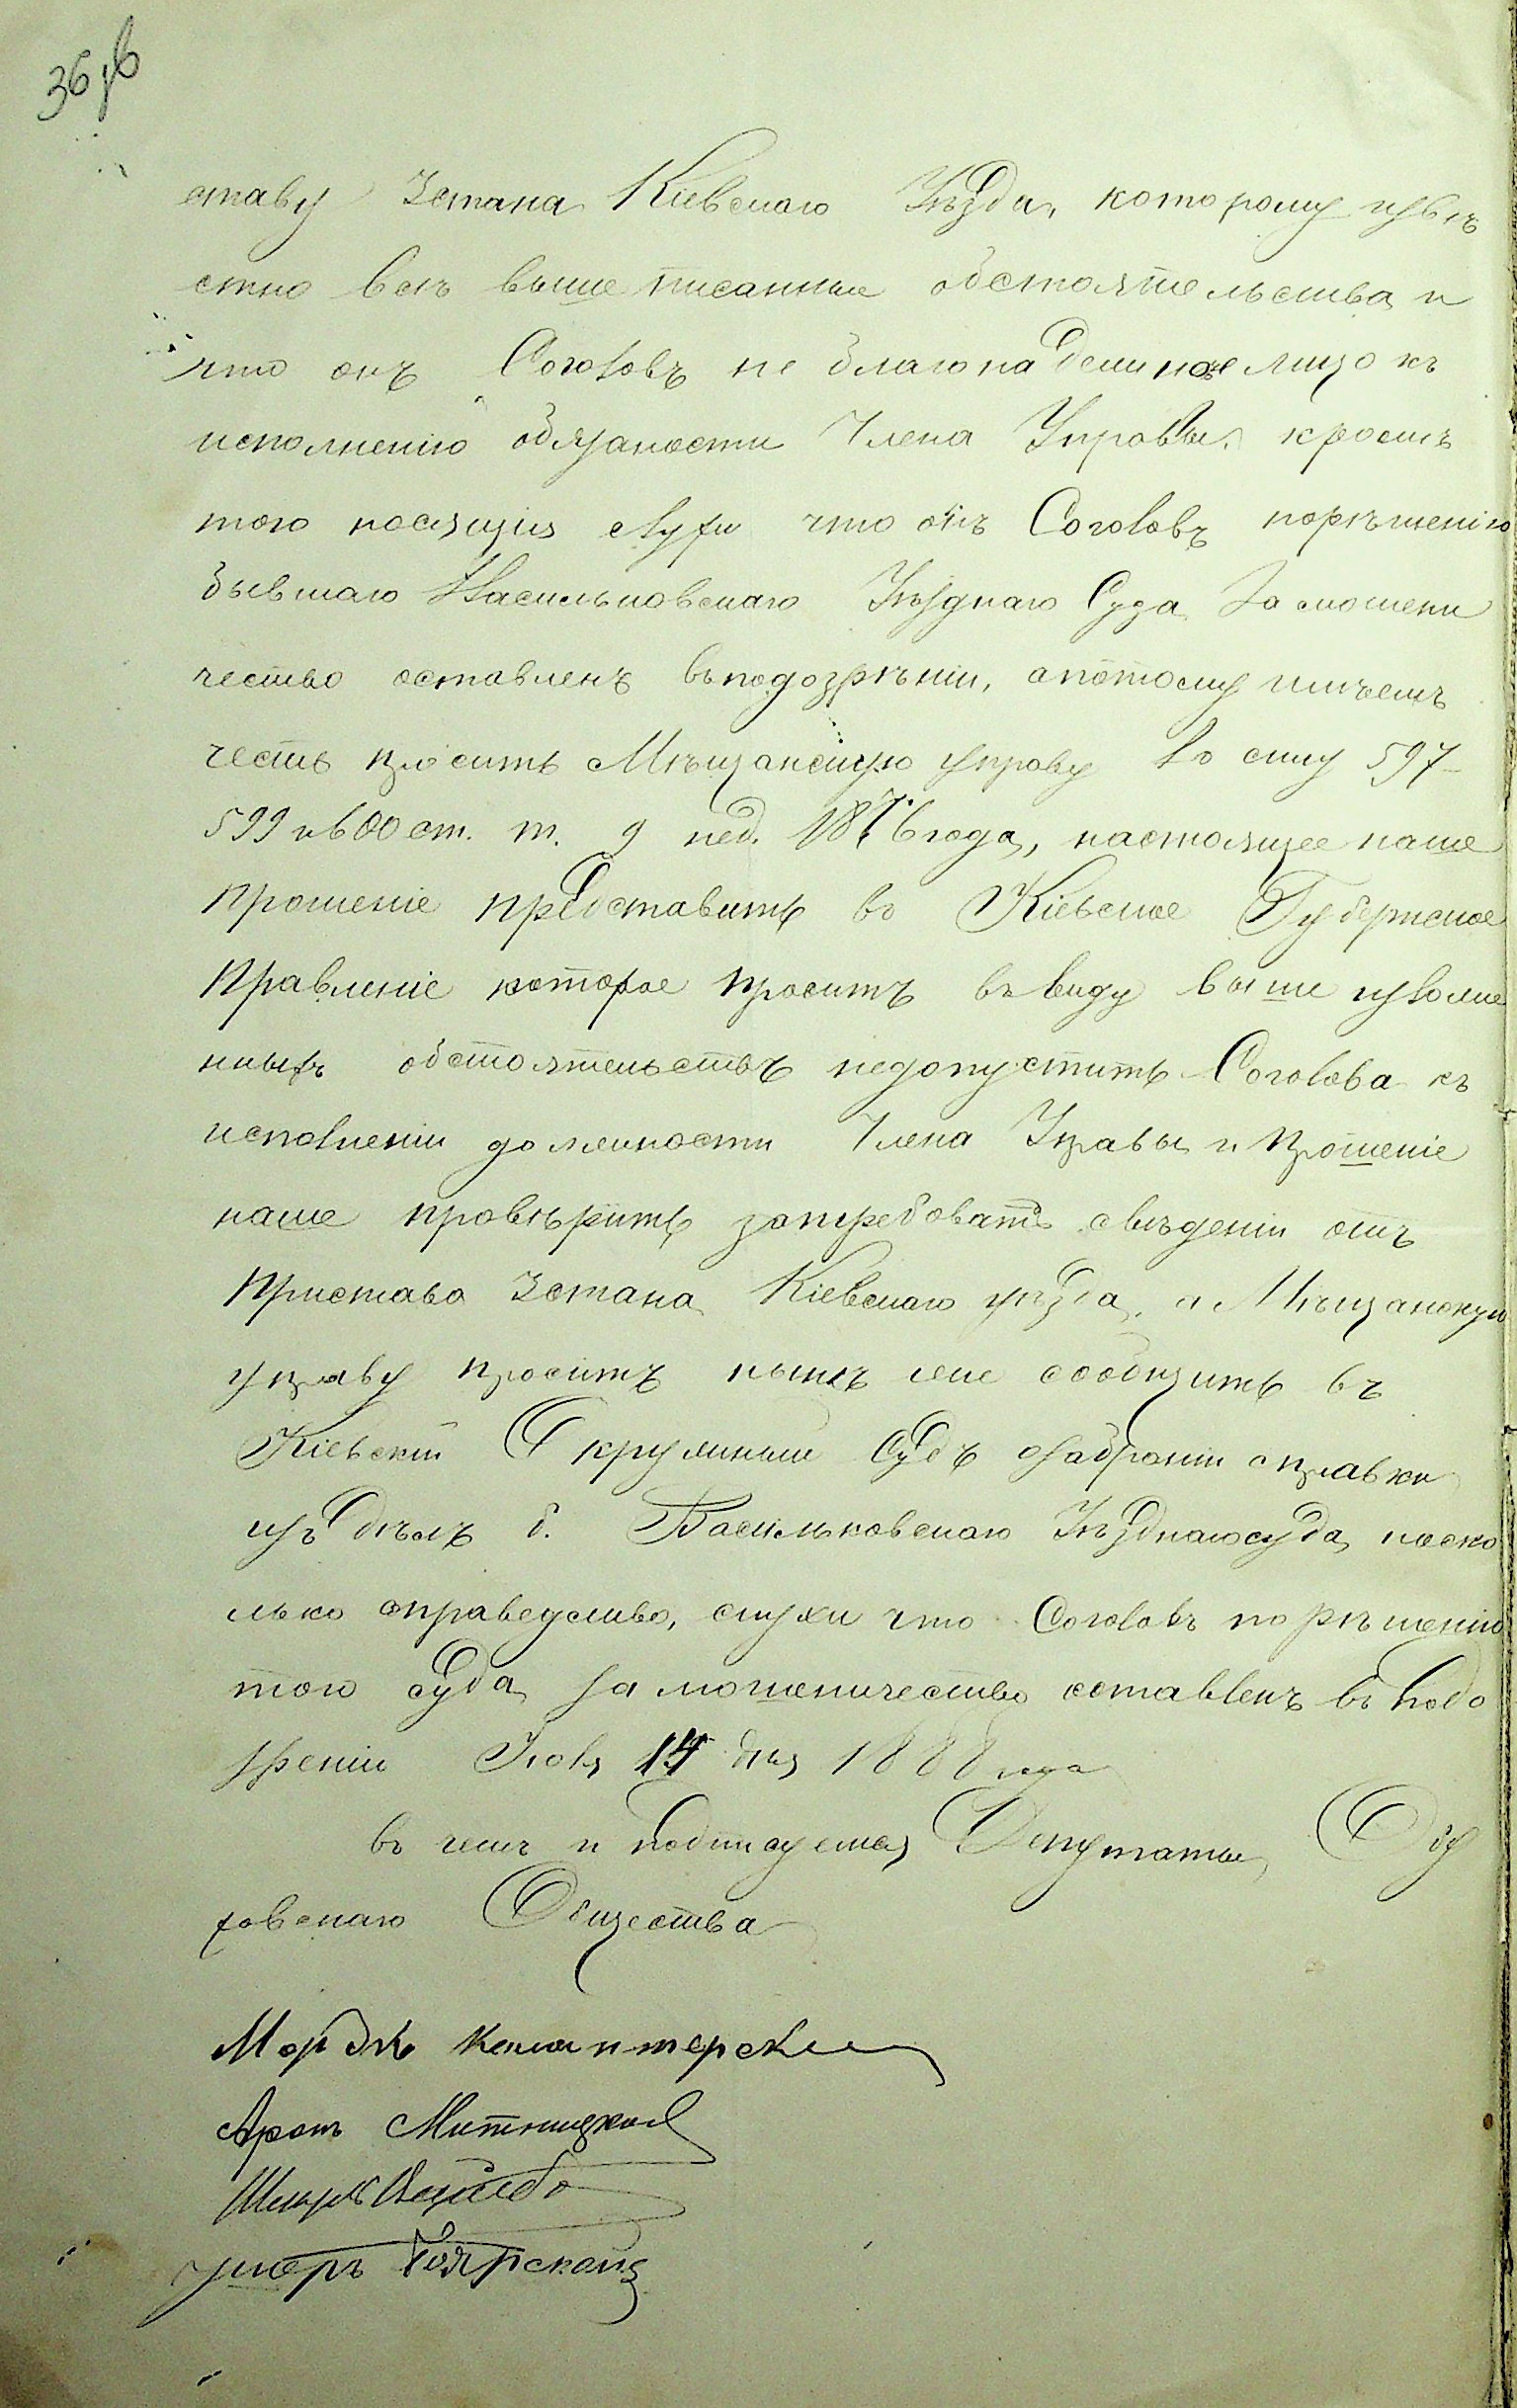 36 об
ставу 3 стана Кіевскаго Уѣзда, которому извѣ
стно всѣ выше писанные обстоятельства и
что онъ Соголовъ не благонадежное лицо къ
исполненію обязаности Члена Управы, кромѣ
того носящія слухи что онъ Соголовъ порѣшенію
бывшаго Васильковскаго Уѣзднаго Суда за мошени
чество оставленъ въподозрѣніи, апотому имѣемъ
честь просить Мѣщанскую управу во силу 597
599 и 600 ст. т. 9 изд. 1876 года, настоящее наше
прошеніе представить во Кіевское Губернское
Правленіе которое просить въ виду выше изложе
нныхъ обстоятельствъ недопустить Соголова къ
исполненіи должности Члена Управы и прошеніе
наше провѣрить затребовать свѣденіи отъ
Пристава 3 стана Кіевскаго уѣзда, а Мѣщанскую
управу просить нынѣ же сообщить въ
Кіевскій Окружный Судъ озабраніи справки
изъ дѣлъ б. Васильковскаго Уѣзднаго суда, наско
лько справедливо, слухи что Соголовъ по рѣшенію
того суда за мошеничество оставленъ въ подо
зреніи Іюля 14 дня 1888 года
въ чемъ и подписуемся Депутаты Обу
ховскаго Общества
Мордко
Аронъ Митницкій
Умеръ Боярской